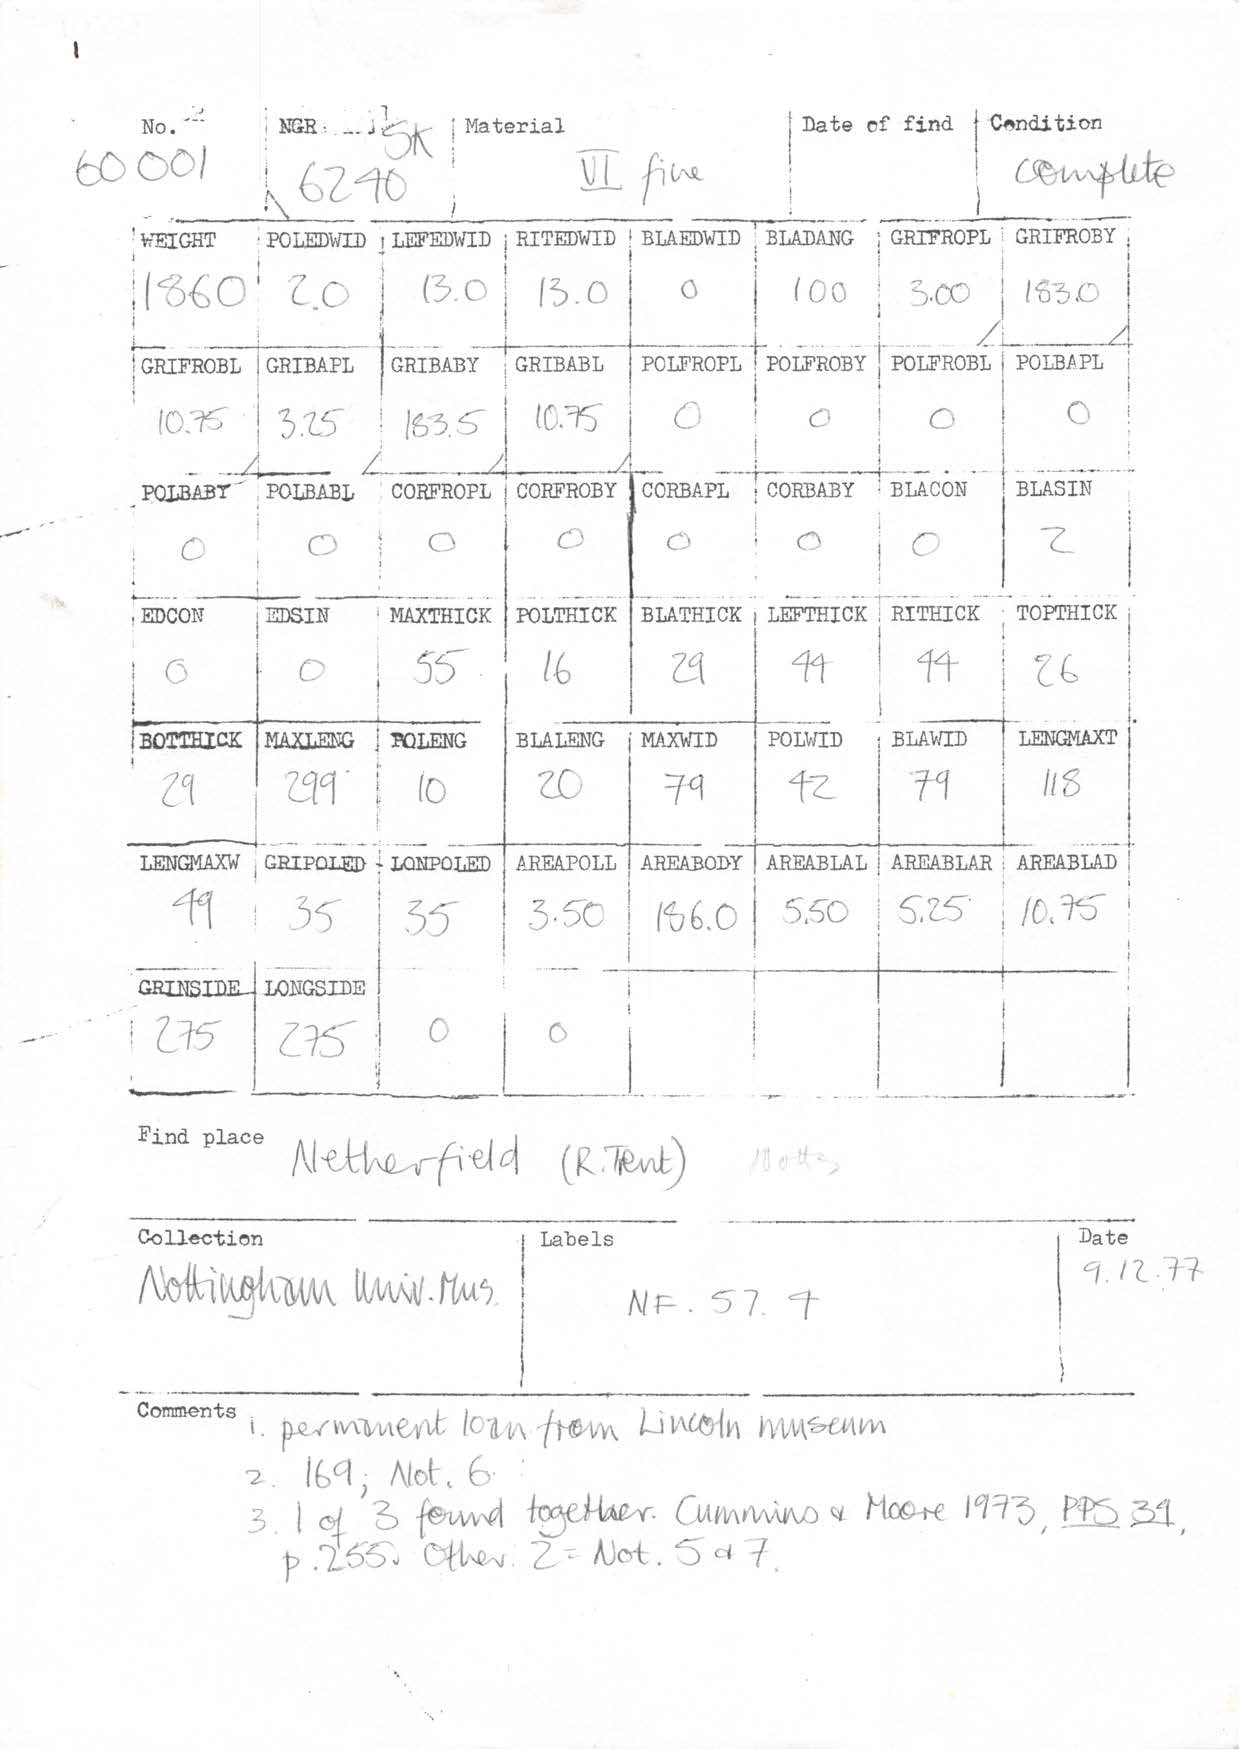 1
No. NGR Material Date of find Condition
60001 SK 6240 VI fine complete
WEIGHT POLEDWID LEFEDWID RITEDWID BLAEDWID BLADANG GRIFROPL GRIFROBY
1860 2.0 13.0 13.0 0 100 3.00 183.0
GRIFROBL GRIBAPL GRIBABY GRIBABL POLFROPL POLFROBY POLFROBL POLBAPL
10.75 3.25 183.5 10.75 0 0 0 0
POLBABY POLBABL CORFROPL CORFROBY CORBAPL CORBABY BLACON BLASIN
0 0 0 0 0 0 0 2
EDCON EDSIN MAXTHICK POLTHICK BLATHICK LEFTHICK RITHICK TOPTHICK
0 0 55 16 29 44 44 26
BOTTHICK MAXLENG POLENG BLALENG MAXWID POLWID BLAWID LENGMAXT
29 299 10 20 79 42 79 118
LENGMAXW GRIPOLED LONPOLED AREAPOLL AREABODY AREABLAL AREABLAR AREABLAD
49 35 35 3.50 186.0 5.50 5.25 10.75
GRINSIDE LONGSIDE
275 275 0 0
Find place Netherfield (R. Trent) Notts
Collection Labels Date
Nottingham Univ. Mus. NF. 57. 4 9.12.77
Comments 1. permanent loan from Lincoln museum
2. 169; Not. 6
3. 1 of 3 found together. Cummins & Moore 1973, PPS 39,
p.255. Other 2 = Not. 5 & 7.